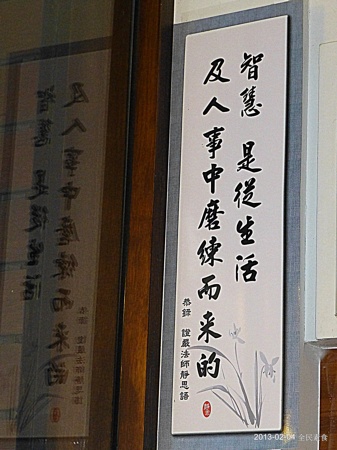 智慧 是從生活
及人事中磨練而来的
恭錄 證嚴法師靜思語
2013-02-04 全民素食